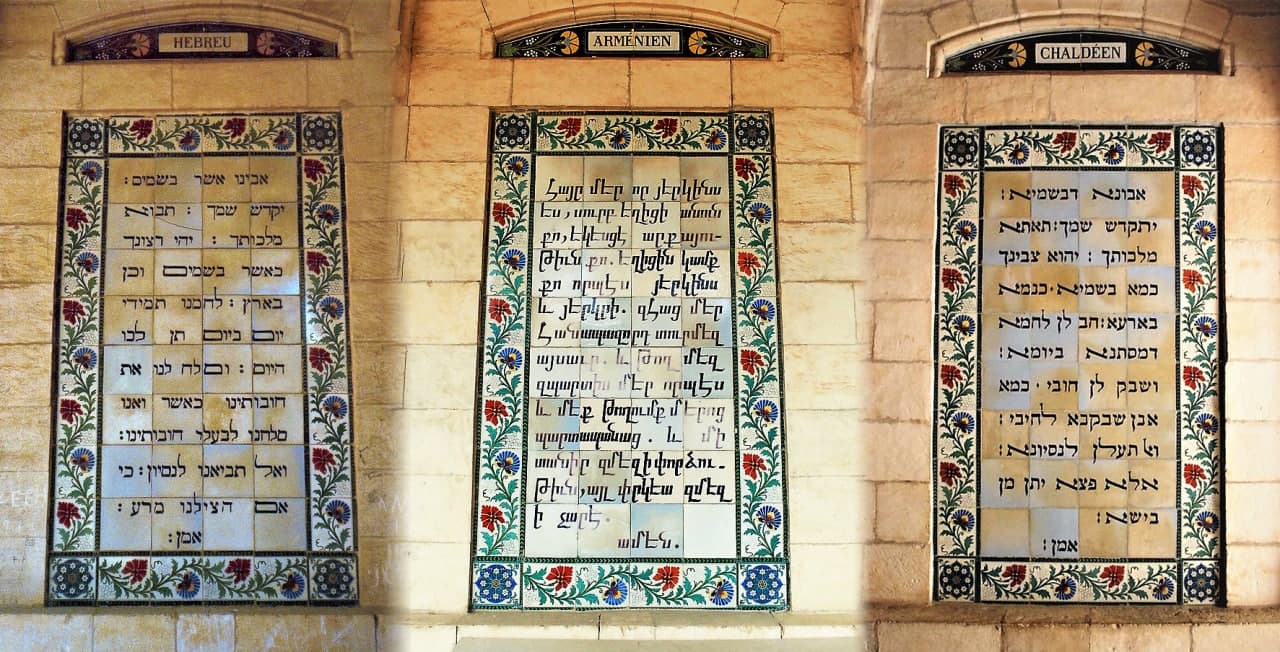 HEBREU
אבינו אשר בשמים:
יקדש שמך : תבוא
מלכותך : יהי רצונך
כאשר בשמים וכן
בארץ : לחמנו תמידי
יום ביום תן לנו
היום : וסלח לנו את
חובותינו כאשר ואנו
סלחנו לבעלי חובותינו:
ואל תביאנו לנסיון: כי
אם הצילנו מרע:
אמן:
ARMÉNIEN
Հայր մեր որ յերկինս
ես, սուրբ եղիցի անուն
քո, եկեսցէ արքայու-
թիւն քո. եղիցին կամք
քո որպէս յերկինս
և յերկրի. զհաց մեր
Հանապազօրդ տուր մեզ
այսաւր. և թող մեզ
զպարտիս մեր որպէս
և մեք թողումք մերոց
պարտապանաց. և մի
տանիր զմեզ ի փորձու-
թիւն, այլ փրկեա զմեզ
ի չարէ.
ամէն.
CHALDÉEN
אבונא דבשמיא:
יתקדש שמך: תאתא
מלכותך : יהוא צבינך
כמא בשמיא. כנמא
בארעא: הב לן לחמא
דמסתנא ביומא:
ושבק לן חובי. כמא
אנן שבקנא לחיבי:
ולא תעלן לנסיונא:
אלא פצא יתן מן
בישא:
אמן: